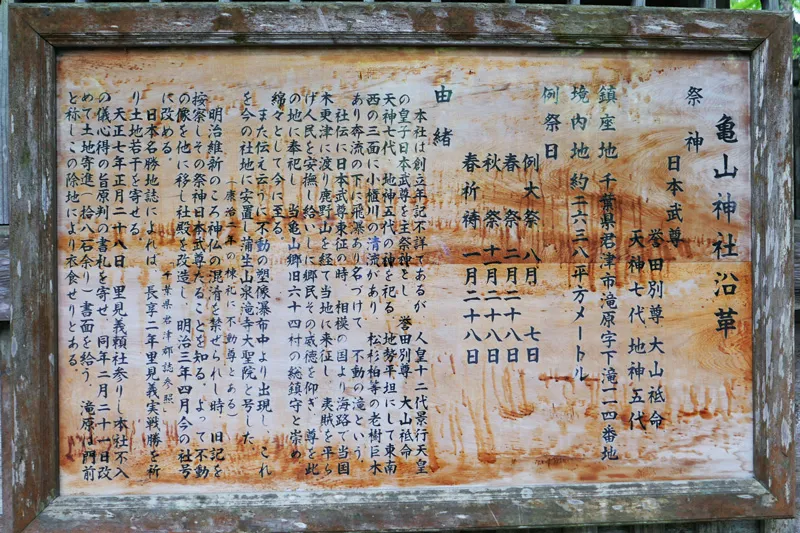 亀山神社沿革
祭神　日本武尊　誉田別尊　大山祗命
天神七代　地神五代
鎮座地　千葉県君津市滝原字下滝一一四番地
境内地　約二六三八平方メートル
例祭日
例大祭　八月　七日
春祭　二月二十八日
秋祭　十月二十八日
春祈祷　一月二十八日
由緒
本社は創立年記不詳であるが　人皇十二代景行天皇
の皇子日本武尊を主祭神とし　誉田別尊　大山祗命
天神七代　地神五代の神を祀る　地勢平坦にして東南
西の三面に小櫃川の清流があり　松杉柏等の老樹巨木
あり奔流の下に飛瀑あり名づけて　不動の滝という，
社伝に日本武尊東征の時　相模の国より海路で当国
木更津に渡り鹿野山を経て当地に来征し　夷賊を平ら
げ人民を安撫し給いしに郷民その威徳を仰ぎ　尊を此
の地に奉祀し　当亀山郷旧六十四村の総鎮守と崇め
綿々として今に至る。
また伝え云うに不動の塑像瀑布中より出現し　これ
を今の社地に安置し蒲生山泉滝寺大聖院と号した
（康治二年の棟札に不動尊とある）
明治維新のころ神仏の混淆を禁ぜられし時　旧記を
按察しその祭神日本武尊たることを知る、よって不動
の像を他に移し社殿を改造し　明治三年四月今の社号
に改める。　千葉県君津郡誌参照
日本名勝地誌によれば、長享二年里見義実戦勝を祈
り土地若干を寄せる。
天正七年正月二十八日　里見義頼社参りし本社不入
の儀心得の旨原判の書札を寄せ、同年二月二十一日改
めて土地寄進（拾八石余り）書面を給う、滝原は門前
と称しこの除地により衣食せりとある。